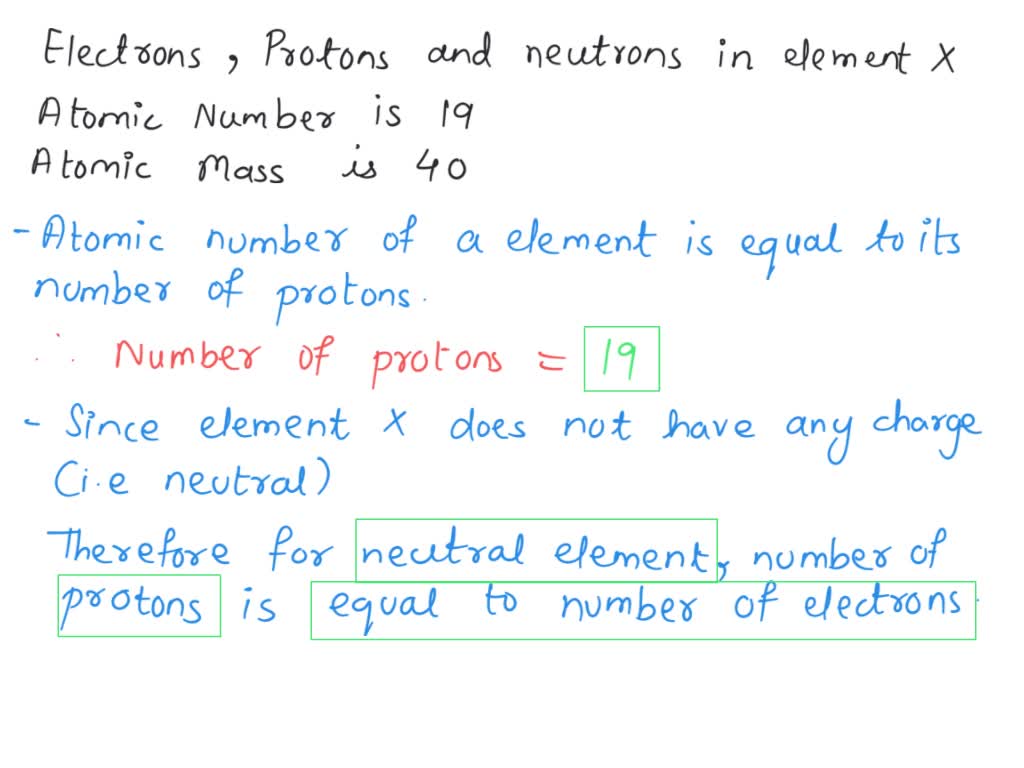 Electrons, Protons and neutrons in element X
Atomic Number is 19
Atomic Mass is 40
- Atomic number of a element is equal to its
number of protons.
∴ Number of protons = 19
- Since element X does not have any charge
(i.e neutral)
Therefore for neutral element, number of
protons is equal to number of electrons.